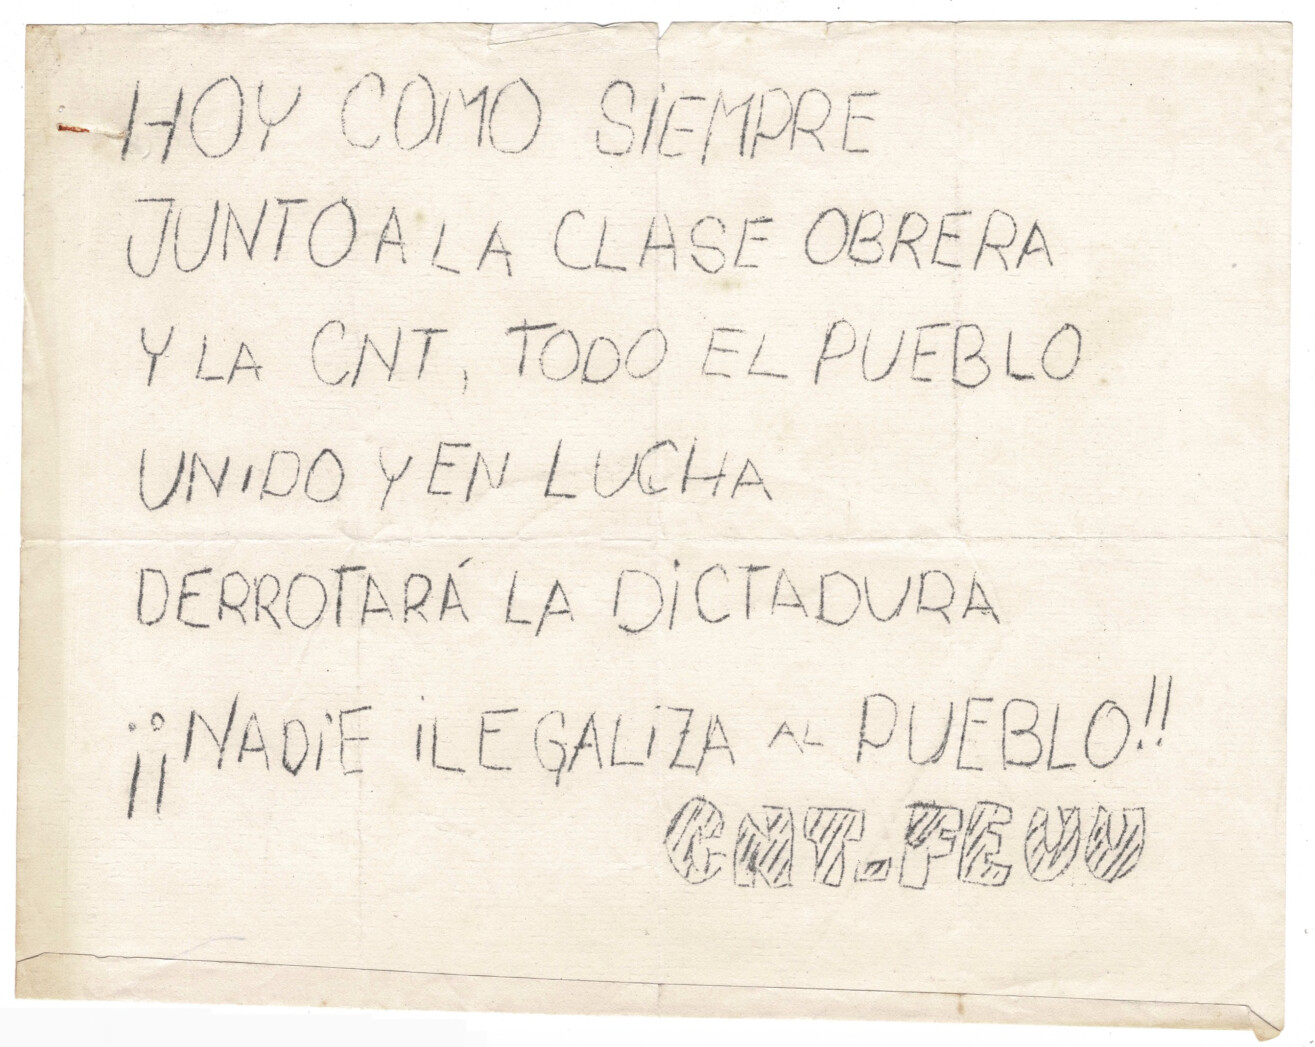 HOY COMO SiEMPRE
JUNTO A LA CLASE OBRERA
Y LA CNT, TODO EL PUEBLO
UNIDO Y EN LUCHA
DERROTARÁ LA DiCTADURA
¡¡NADiE iLEGALiZA AL PUEBLO!!
CNT-FEUU